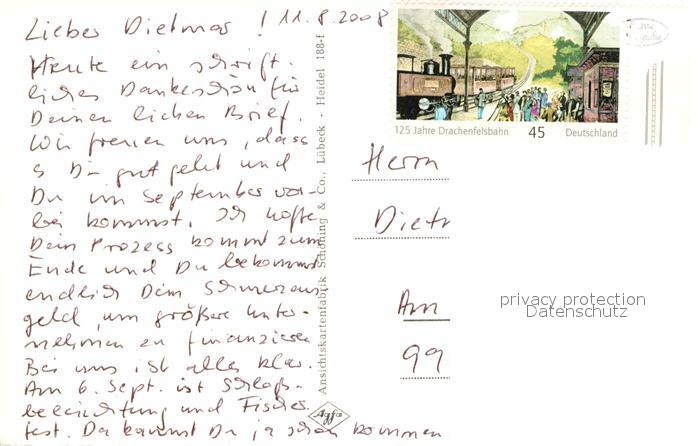 Lieber Dietmar ! 11.8.2008
Heute ein schrift-
liches Dankeschön für
Deinen lieben Brief.
Wir freuen uns, dass
s Dir gut geht und
Du im September vor-
bei kommst. Ich hoffe
Dein Prozess kommt zum
Ende und Du bekommst
endlich Dein Schmerzens
geld, um größere Unter-
nehmen zu finanzieren
Bei uns ist alles klar.
Am 6. Sept. ist Schloß-
beleuchtung und Fischer
fest. Da kannst Du ja schon kommen
Ansichtskartenfabrik Schöning & Co., Lübeck - Heidel 188-f
Agfa
125 Jahre Drachenfelsbahn 45 Deutschland
Herrn
Diet
Am
99
privacy protection
Datenschutz